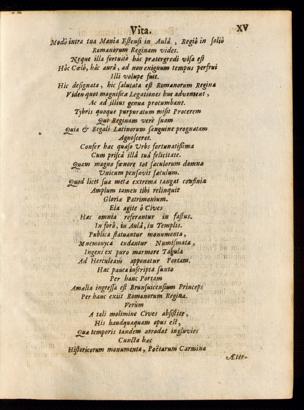 Vita. XV
Modò intra tua Mænia Estensi in Aulâ, Regiô in soliô
Romanorum Reginam vides.
Neque illa fortuitò hic prætergredi visa est
Hôc Cœlô, hic aurâ, ad non exiguum tempus perfrui
Illi volupe fuit.
Hic designata, hic salutata est Romanorum Regina
Viden quot magnificæ Legationes huc advenerat,
Ac ad illius genua procumbant.
Tybris quoque purpuratum misit Procerem
Qui Reginam verè suam
Quia è Regali Latinorum sanguine prognatam
Agnosceret.
Confer hæc quæso Urbs fortunatissima
Cum priscâ illâ tuâ felicitate.
Quam magno fœnore tot sæculorum damna
Unicum pensavit sæculum.
Quod licet sua meta extrema tangat confinia
Amplum tamen tibi relinquit
Gloriæ Patrimonium.
Eia agite ô Cives
Hæc omnia referantur in fastus.
In forô, in Aulâ, in Templis.
Publica statuantur monumenta,
Mnemonyca cudantur Numismata,
Ingens ex puro marmore Tabula
Ad Herculeam apponatur Portam.
Hæc pauca inscripta sunto
Per hanc Portam
Amalia ingressa est Brunsuicensium Princeps
Per hanc exiit Romanorum Regina.
Verùm
A tali molimine Cives absistite,
His haudquaquam opus est,
Quæ temporis tandem arrodat ingluvies
Cuncta hæc
Historicorum monumenta, Poëtarum Carmina
Æter-